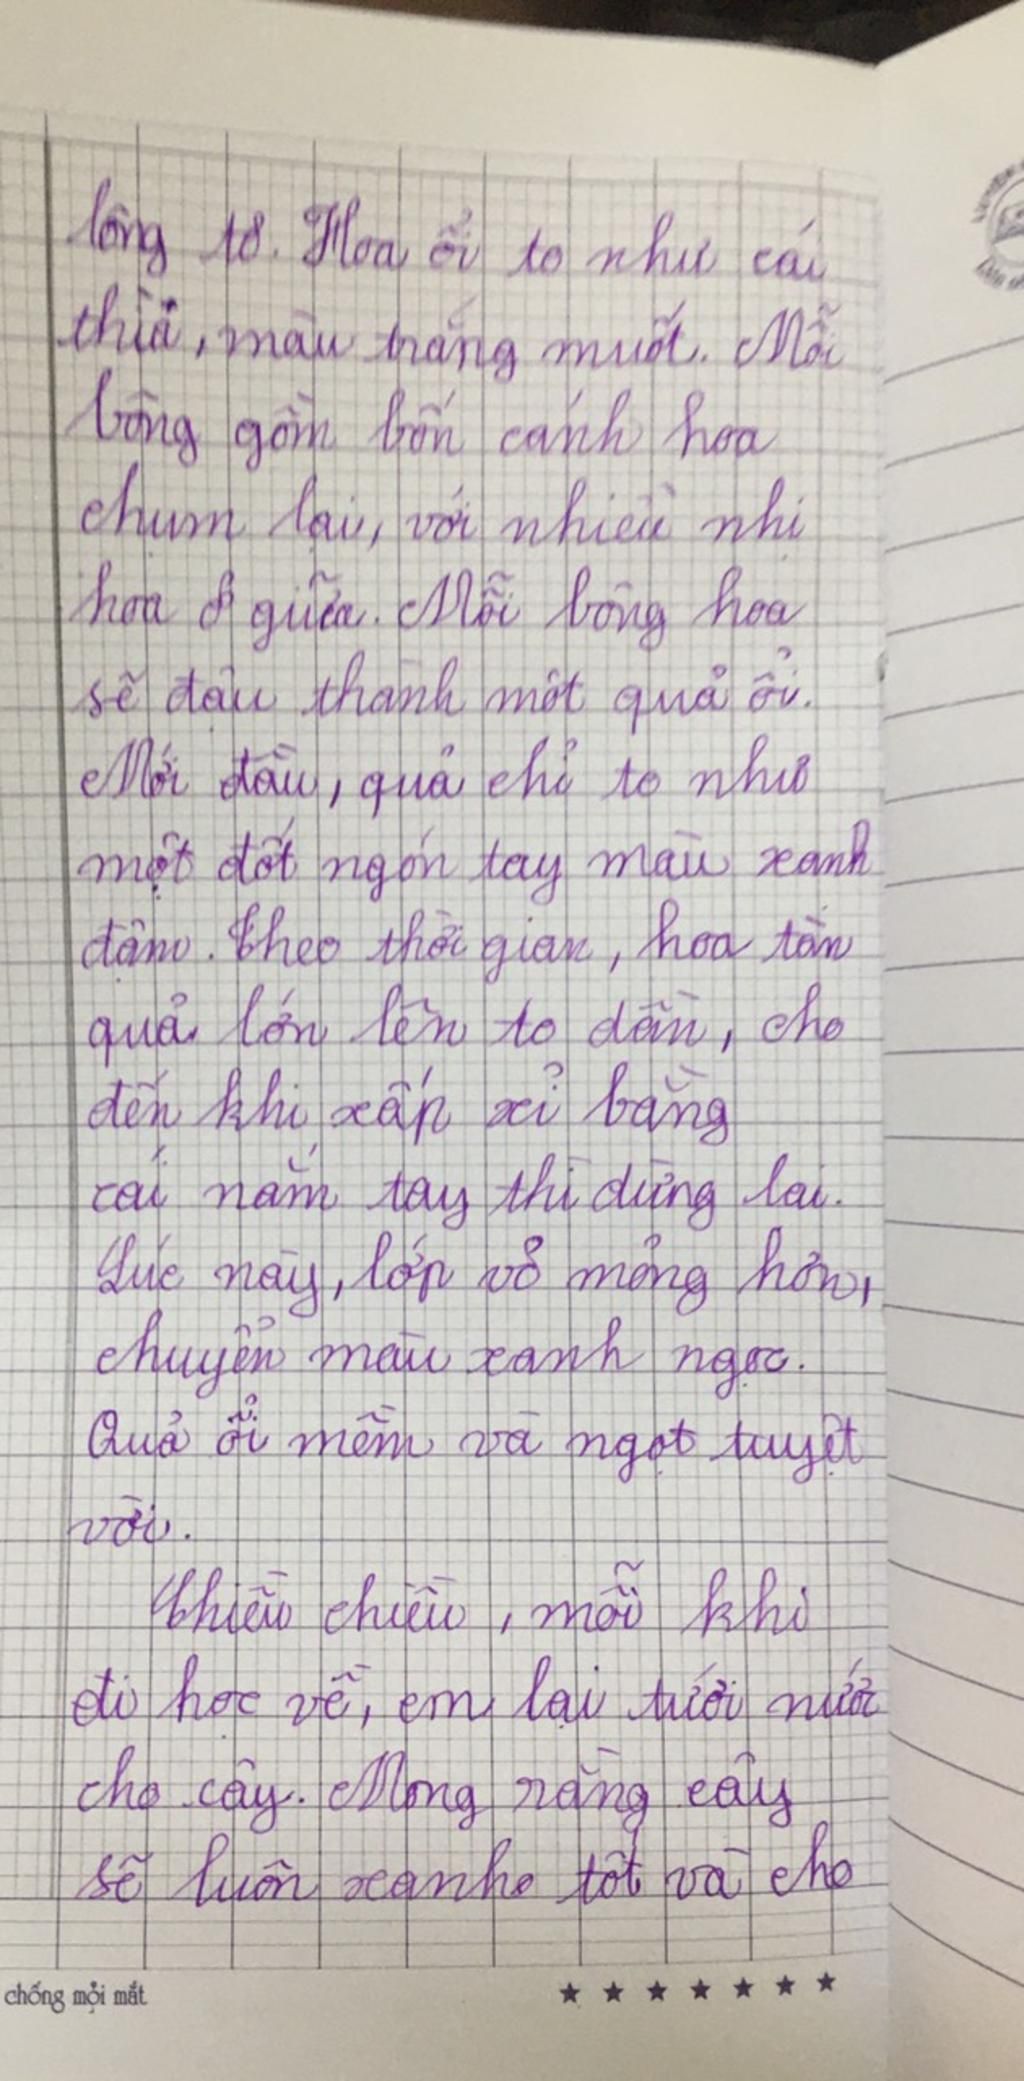 lông tơ. Hoa ổi to như cái
thìa, màu trắng muốt. Mỗi
bông gồm bốn cánh hoa
chụm lại, với nhiều nhị
hoa ở giữa. Mỗi bông hoa
sẽ đậu thành một quả ổi.
Mới đầu, quả chỉ to như
một đốt ngón tay màu xanh
đậm. Theo thời gian, hoa tàn
quả lớn lên to dần, cho
đến khi xấp xỉ bằng
cái nắm tay thì dừng lại.
Lúc này, lớp vỏ mỏng hơn,
chuyển màu xanh ngọc.
Quả ổi mềm và ngọt tuyệt
vời.
Chiều chiều, mỗi khi
đi học về, em lại tưới nước
cho cây. Mong rằng cây
sẽ luôn xanh tốt và cho
chống mỏi mắt